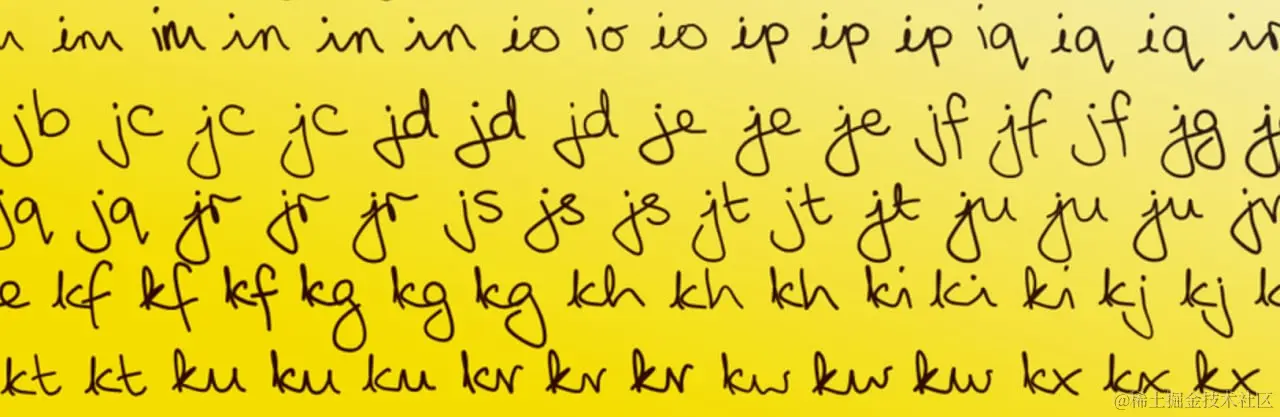 im im in in in io io io ip ip ip iq iq iq
jb jc jc jc jd jd jd je je je jf jf jf jg
jq jq jr jr jr js js js jt jt jt ju ju ju
kf kf kf kg kg kg kh kh kh ki ki ki kj kj
kt kt ku ku ku kv kv kv kw kw kw kx kx kx
@稀土掘金技术社区